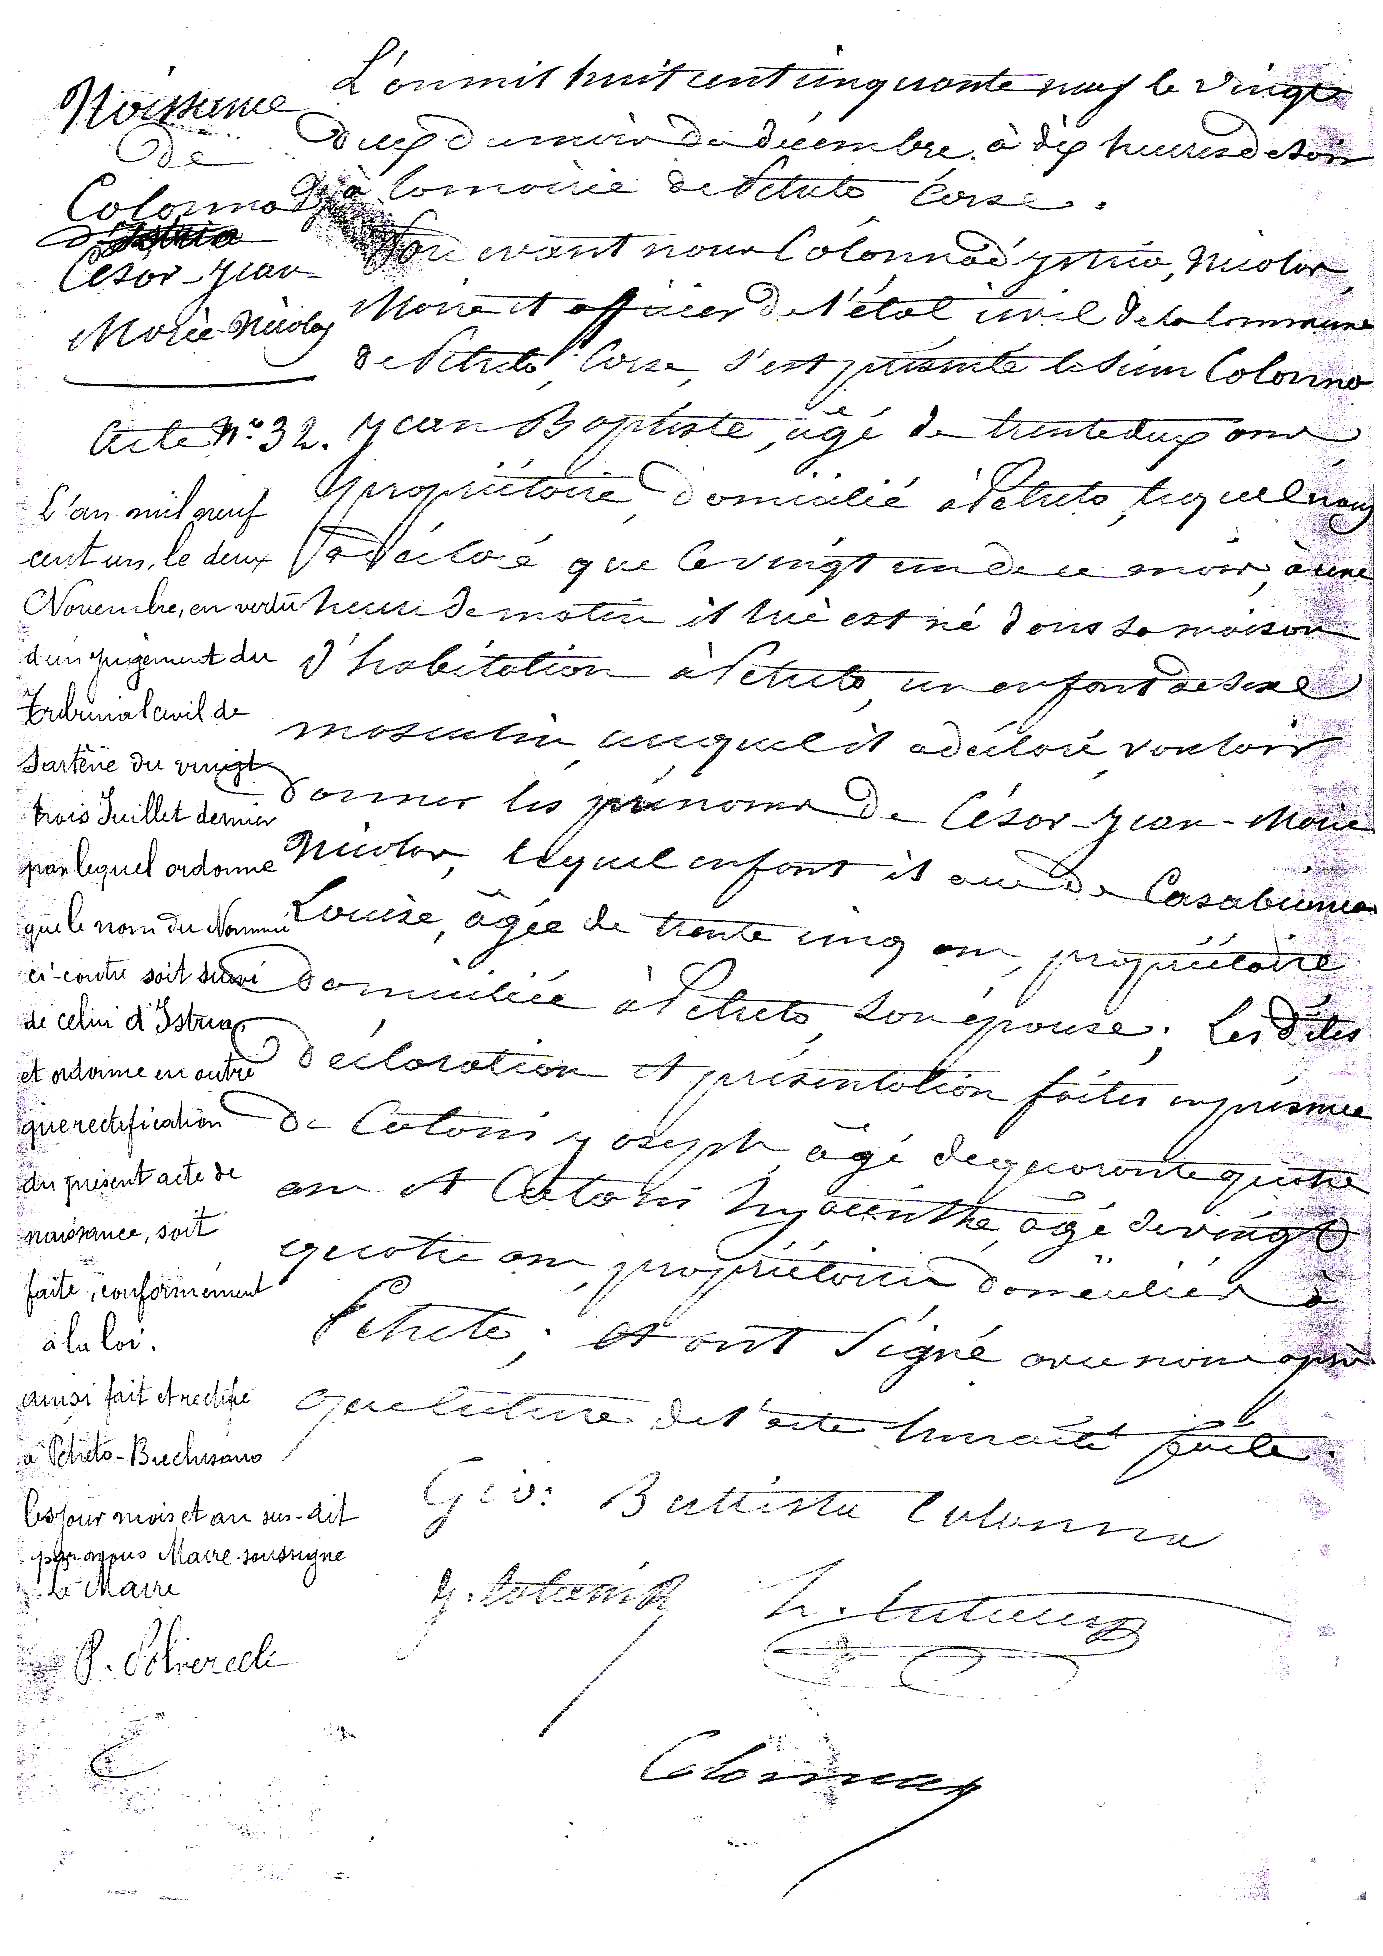 Naissance
de
Colonna
d'Istria
César-Jean
Marie-Nicolas
Acte N.° 32.
L'an mil neuf
cent un, le deux
Novembre, en vertu
d'un jugement du
Tribunal civil de
Sartène du vingt
trois Juillet dernier
par lequel ordonne
que le nom du Nommé
ci-contre soit suivi
de celui d'Istria,
et ordonne en outre
que rectification
du présent acte de
naissance, soit
faite, conformément
à la loi.
ainsi fait et rectifié
à Petreto-Bicchisano
les jour mois et an sus-dit
par nous Maire soussigné
Le Maire
L'an mil huit cent cinquante neuf le vingt
deux du mois de décembre, à dix heures de soir
à la mairie de Petreto Corse.
Par devant nous Colonna d'Ystria, Nicolas,
Maire et officier de l'état civil de la Commune
de Petreto, Corse, s'est présenté le sieur Colonna
Jean Baptiste, âgé de trente deux ans
propriétaire, domicilié à Petreto, lequel nous
a déclaré que le vingt un de ce mois, à une
heure de matin il lui est né dans sa maison
d'habitation à Petreto, un enfant de sexe
masculin, auquel il a déclaré, vouloir
donner les prénoms de César-Jean-Marie
Nicolas, lequel enfant il a eu de Casabianca
Louise, âgée de trente cinq ans, propriétaire
domiciliée à Petreto, son épouse; Les dites
déclaration et présentation faites en présence
de Catoni Joseph, âgé de quarante quatre
ans et Catoni hyacinthe, âgé de vingt
quatre ans, propriétaires domiciliés à
Petreto; et ont signé avec nous après
que lecture de l'acte leur a été faite.
Gio: Battista Colonna
Colonna